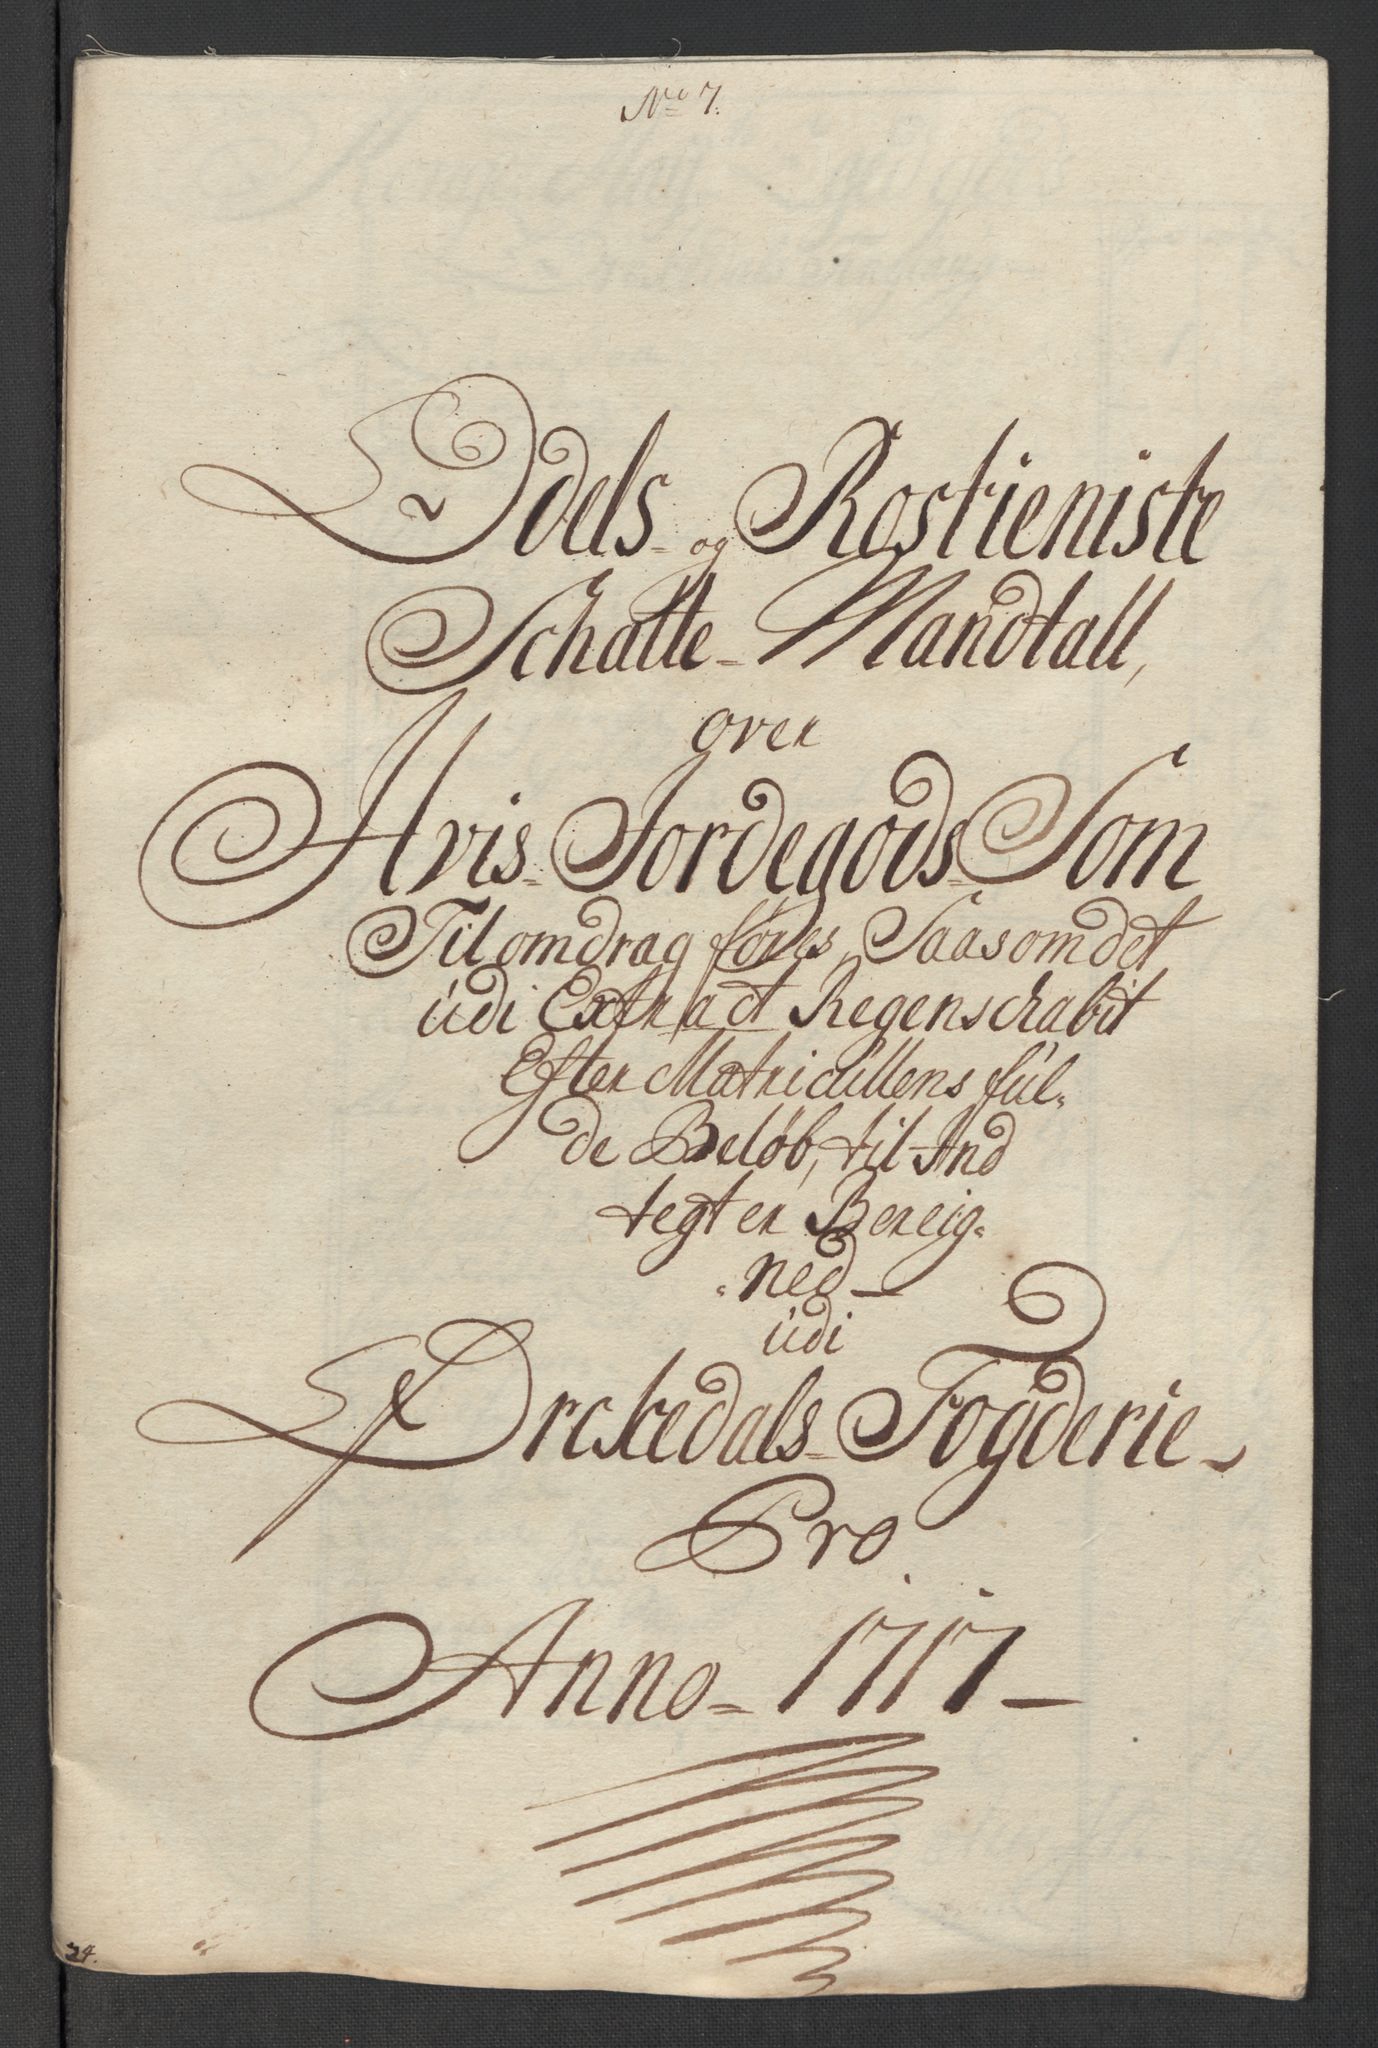 No 7.
Odels- og Rostieniste
Schatte- Mandtall,
over
Hvis- Jordegods- Som
Til omdrag føres, Saasom det
udi Extract Regenschabit
Efter Matricullens ful-
de Beløb, til And
tegter Bereig-
-ned-
udi
Ørckedals- Fogderie-
Pro
Anno- 1717-
24.